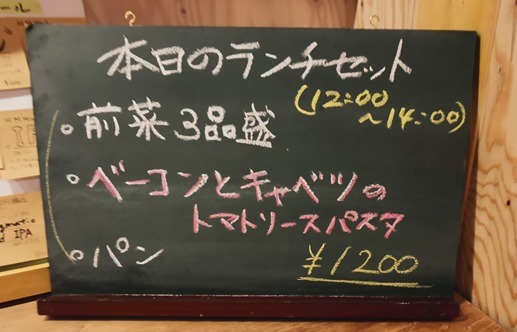 本日のランチセット
(12:00
~14:00)
。前菜3品盛
。ベーコンとキャベツの
トマトソースパスタ
。パン
¥1200
IPA